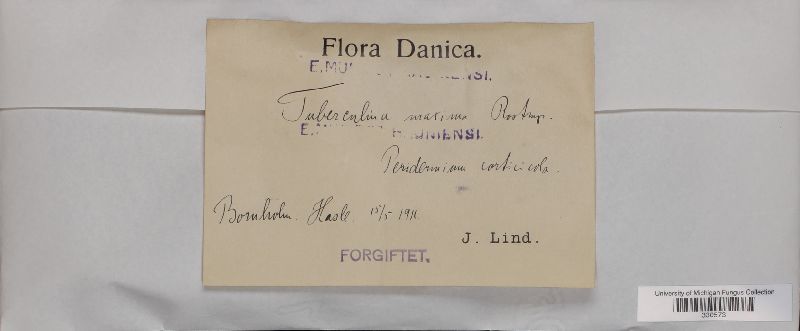 Flora Danica.
E. MUS
ENSI.
Tuberculina maxima Rostrup.
E. MU
HAUNIENSI.
Peridermium corticola.
Bornholm. Hasle. 15/5 1911.
J. Lind.
FORGIFTET.
University of Michigan Fungus Collection
330573